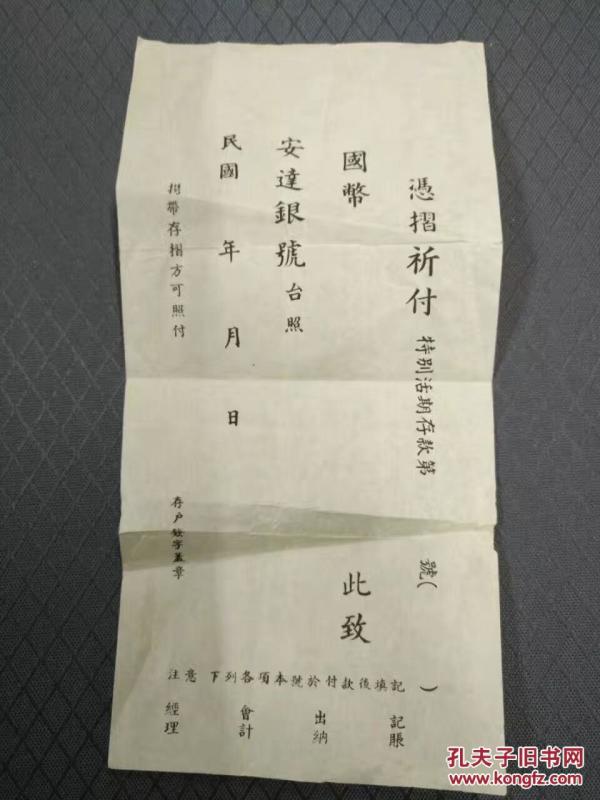 憑摺祈付 特别活期存款第 號( )
國幣 此致
安達銀號 台照
民國 年 月 日
摺帶存摺方可照付 存户簽字蓋章
注意 下列各項本號於付款後填記
記賬
出納
會計
經理
孔夫子旧书网
www.kongfz.com